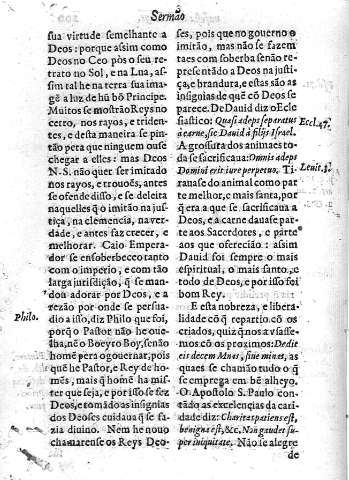 Sermão
sua virtude semelhante a
Deos: porque assim como
Deos no Ceo pòs o seu re-
trato no Sol, e na Lua, as-
sim tal he na terra sua ima-
gē a luz de hū bō Principe.
Muitos se mostrão Reys no
cetro, nos rayos, e triden-
tes, e desta maneira se pin-
tão pera que ninguem ouse
chegar a elles: mas Deos
N. S. não quer ser imitado
nos rayos, e trouoēs, antes
se ofende disso, e se deleita
naquelles q̄ o imitão na jus-
tiça, na clemencia, na ver-
dade, e antes faz crecer, e
melhorar. Caio Empera-
dor se ensoberbeceo tanto
com o imperio, e com tão
larga jurisdição, q̄ se man-
dou adorar por Deos, e a
rezão por onde se persua-
Philo.
dio a isso, diz Philo que foi,
porq̄ o Pastor não he oue-
lha, nē o Boeyro Boy, senão
homē pera o gouernar, pois
que he Pastor, e Rey de ho-
mēs, mais q̄ homē ha mis-
ter que seja, e por isso se fez
Deos, e tomādo as insignias
dos Deoses cuidaua q̄ se fa-
zia diuino. Nem he nouo
chamarense os Reys Deo-
ses, pois que no governo o
imitão, mas não se fazem
taes com soberba senão re-
presentādo a Deos na justi-
ça, e brandura, e estas são as
insignias de quē cō Deos se
parece. De Dauid diz o Ecle-
siastico: Quasi adeps separatus
Eccl. 47.
à carne, sic Dauid à filijs Israel.
A grossura dos animaes to-
da se sacrificaua: Omnis adeps
Leuit. 3.
Domini erit iure perpetuo. Ti-
rauase do animal como par-
te melhor, e mais santa, por
q̄ era a que se sacrificaua a
Deos, e a carne dauase par-
te aos Sacerdotes, e parte
aos que oferecião: assim
Dauid foi sempre o mais
espiritual, o mais santo, e
todo de Deos, e por isso foi
bom Rey.
E esta nobreza, e libera-
lidade cō q̄ repartio cō os
criados, quiz q̄ nos a vsasse-
mos cō os proximos: Dedit
eis decem Mnas, siue mines, as
quaes se chamão tudo o q̄
se emprega em bē alheyo.
O Apostolo S. Paulo con-
tādo as excelencias da cari-
dade diz: Charitas patiens est,
benigna est, &c. Non gaudet su-
per iniquitate. Não se alegre
de